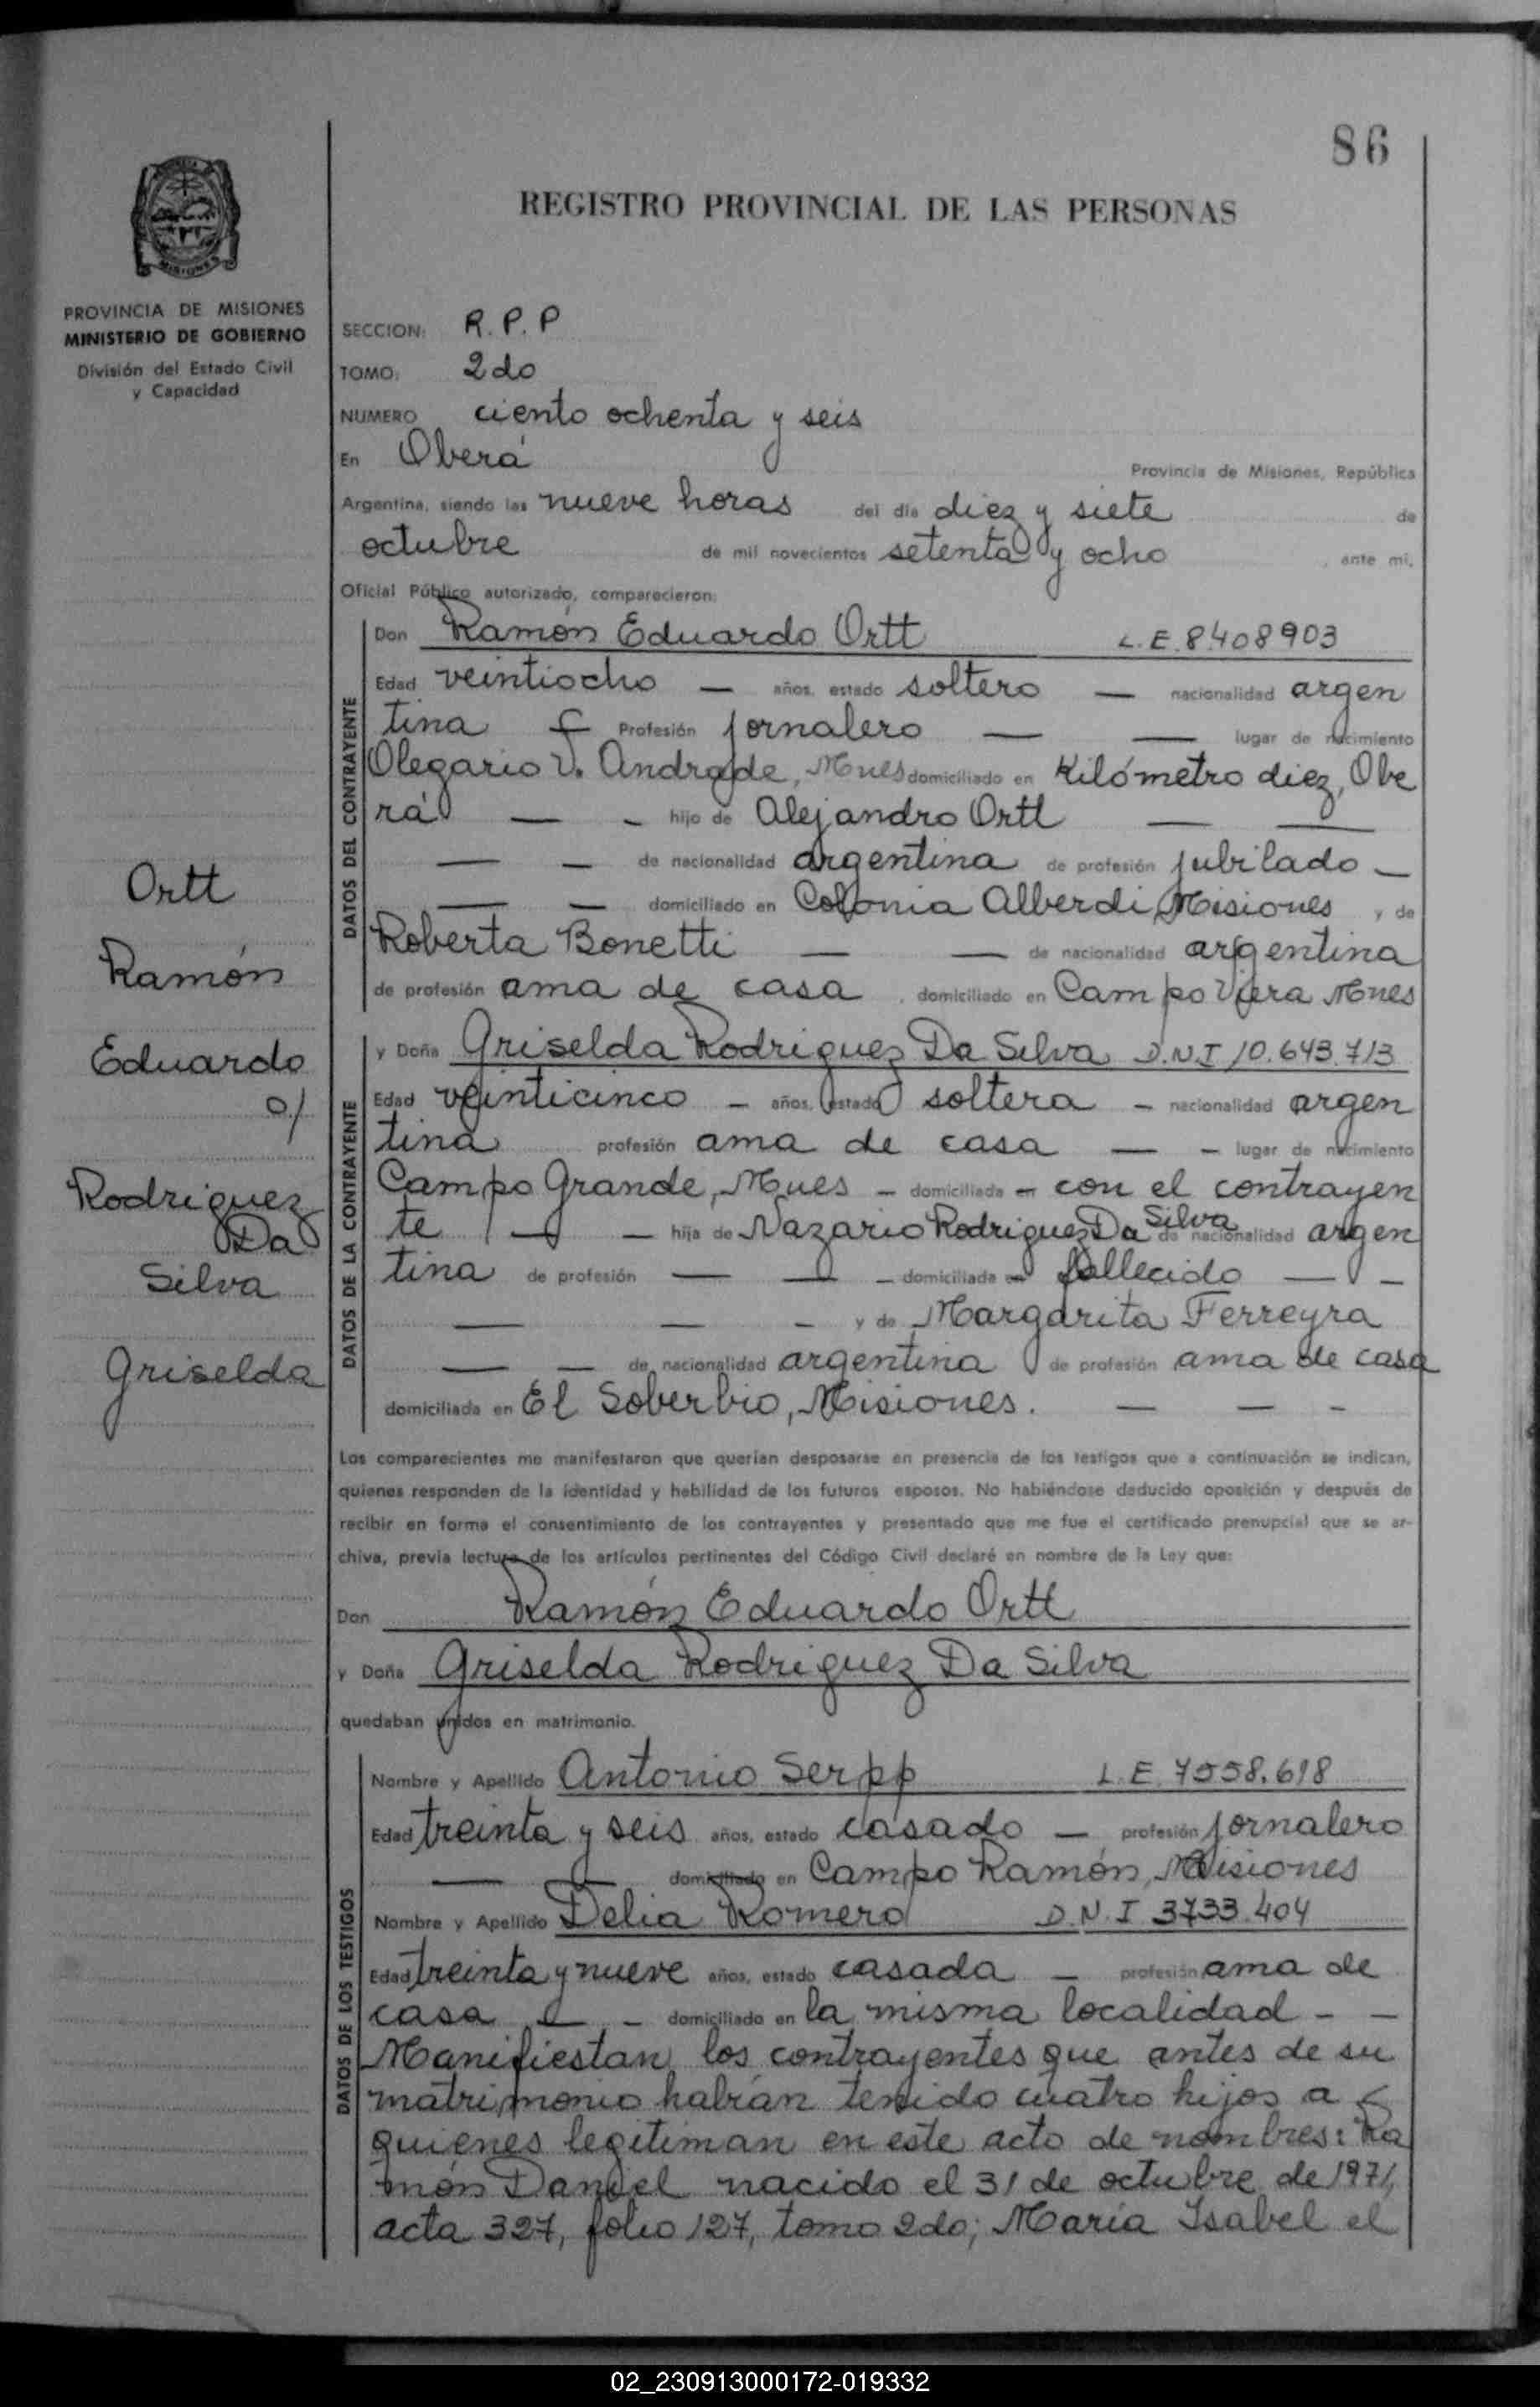 86
REGISTRO PROVINCIAL DE LAS PERSONAS
MISIONES
PROVINCIA DE MISIONES
MINISTERIO DE GOBIERNO
División del Estado Civil
y Capacidad
SECCION: R. P. P
TOMO: 2do
NUMERO ciento ochenta y seis
En Oberá Provincia de Misiones, República
Argentina, siendo las nueve horas del día diez y siete de
octubre de mil novecientos setenta y ocho, ante mi,
Oficial Público autorizado, comparecieron:
DATOS DEL CONTRAYENTE
Don Ramón Eduardo Ortt L.E. 8408903
Edad veintiocho — años, estado soltero — nacionalidad argen
tina Profesión jornalero — — lugar de nacimiento
Olegario V. Andrade, Mnes domiciliado en Kilómetro diez, Obe
rá — - hijo de Alejandro Ortt — —
— — de nacionalidad argentina de profesión jubilado —
— — domiciliado en Colonia Alberdi, Misiones y de
Roberta Bonetti — — de nacionalidad argentina
de profesión ama de casa, domiciliado en Campo Viera Mnes
Ortt
Ramón
Eduardo
c/
Rodriguez
Da
Silva
Griselda
DATOS DE LA CONTRAYENTE
y Doña Griselda Rodriguez Da Silva D.N.I 10.643.713
Edad veinticinco - años, estado soltera - nacionalidad argen
tina profesión ama de casa — - lugar de nacimiento
Campo Grande, Mnes - domiciliada en con el contrayen
te — — hija de Nazario Rodriguez Da Silva de nacionalidad argen
tina de profesión — — - domiciliada en fallecido — -
— — - y de Margarita Ferreyra
— — de nacionalidad argentina de profesión ama de casa
domiciliada en El Soberbio, Misiones. — — -
Los comparecientes me manifestaron que querían desposarse en presencia de los testigos que a continuación se indican,
quienes responden de la identidad y habilidad de los futuros esposos. No habiéndose deducido oposición y después de
recibir en forma el consentimiento de los contrayentes y presentado que me fue el certificado prenupcial que se ar-
chiva, previa lectura de los artículos pertinentes del Código Civil declaré en nombre de la Ley que:
Don Ramón Eduardo Ortt
y Doña Griselda Rodriguez Da Silva
quedaban unidos en matrimonio.
DATOS DE LOS TESTIGOS
Nombre y Apellido Antonio Serpp L.E. 7558.618
Edad treinta y seis años, estado casado — profesión jornalero
— domiciliado en Campo Ramón, Misiones
Nombre y Apellido Delia Romero D.N.I 3733.404
Edad treinta y nueve años, estado casada - profesión ama de
casa — - domiciliado en la misma localidad - -
Manifiestan los contrayentes que antes de su
matrimonio habían tenido cuatro hijos a
quienes legitiman en este acto de nombres: Ra
món Daniel nacido el 31 de octubre de 1971,
acta 327, folio 127, tomo 2do; María Isabel el
02_230913000172-019332